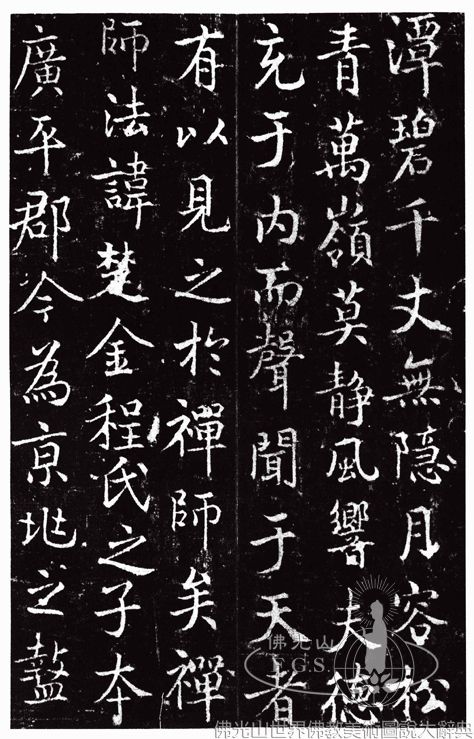 潭碧千丈無隐月容松
青萬嶺莫静風響夫德
充于内而聲聞于天者
有以見之於禪師矣禪
師法諱楚金程氏之子本
廣平郡今為京地之盩
佛光山
FGS
佛光山世界佛教美術圖說大辭典